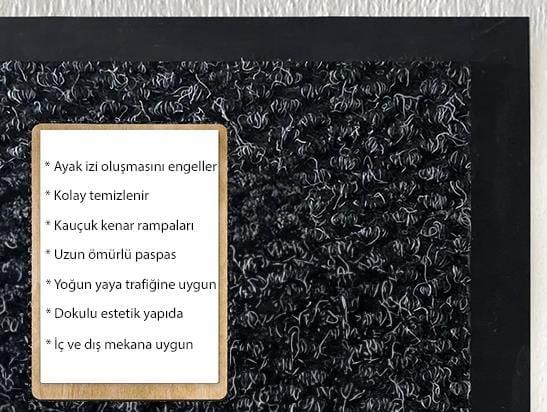 * Ayak izi oluşmasını engeller
* Kolay temizlenir
* Kauçuk kenar rampaları
* Uzun ömürlü paspas
* Yoğun yaya trafiğine uygun
* Dokulu estetik yapıda
* İç ve dış mekana uygun